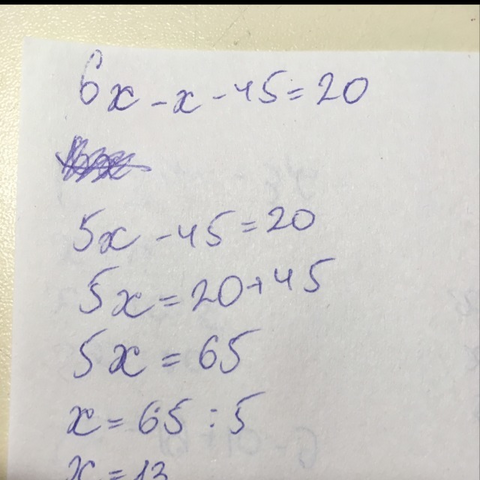 6x - x - 45 = 20
5x - 45 = 20
5x = 20 + 45
5x = 65
x = 65 : 5
x = 13